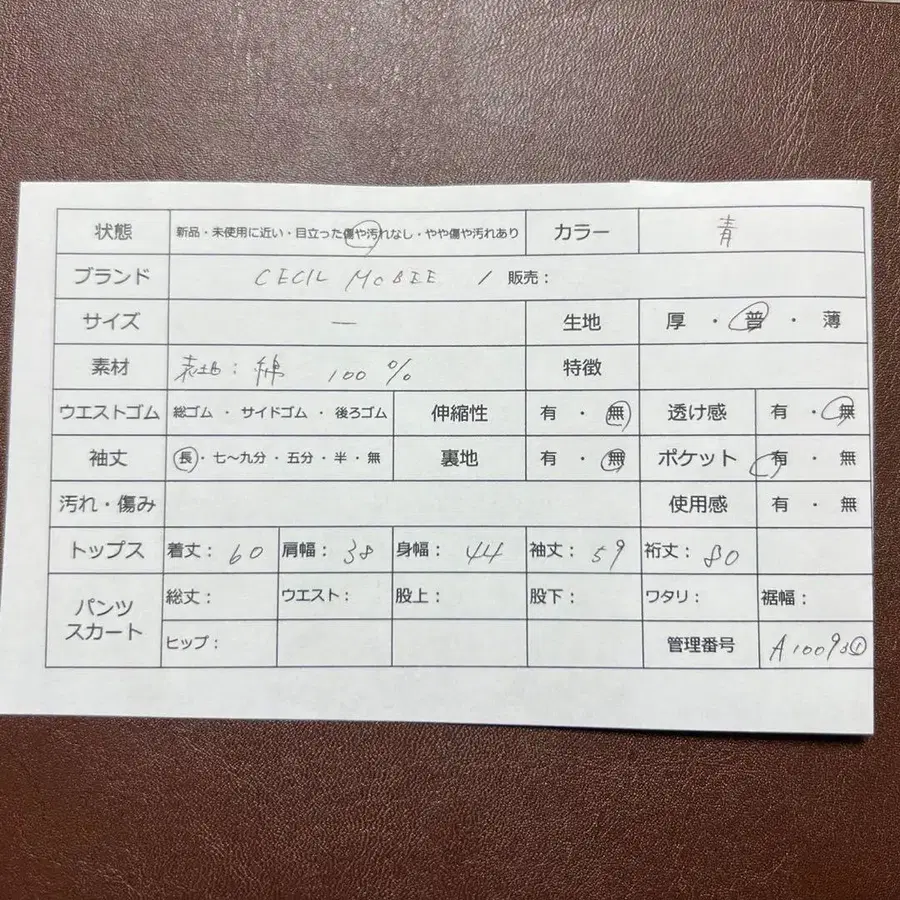 状態 新品・未使用に近い・目立った傷や汚れなし・やや傷や汚れあり カラー 青
ブランド CECIL McBEE / 販売:
サイズ — 生地 厚・普・薄
素材 表地: 綿 100% 特徴
ウエストゴム 総ゴム・サイドゴム・後ろゴム 伸縮性 有・無 透け感 有・無
袖丈 長・七〜九分・五分・半・無 裏地 有・無 ポケット 有・無
汚れ・傷み 使用感 有・無
トップス 着丈: 60 肩幅: 38 身幅: 44 袖丈: 59 裄丈: 80
パンツ スカート 総丈: ウエスト: 股上: 股下: ワタリ: 裾幅:
ヒップ: 管理番号